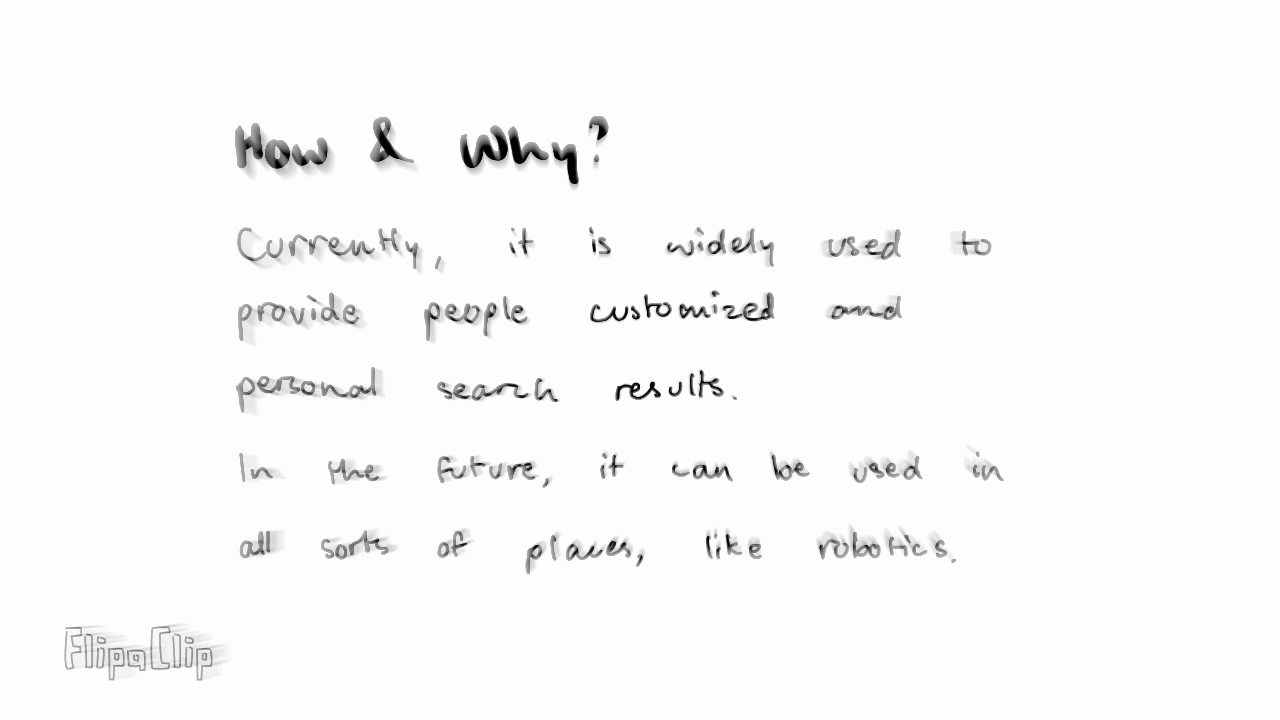 How & Why?
Currently, it is widely used to
provide people customized and
personal search results.
In the future, it can be used in
all sorts of places, like robotics.
FlipaClip